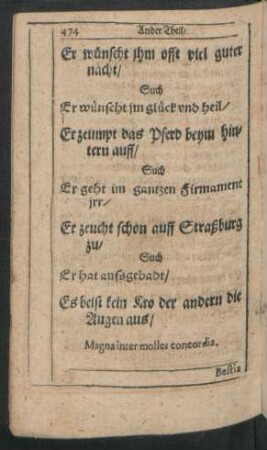 474 Ander Theil/
Er wünscht jhm offt viel guter
nacht/
Such
Er wünscht jm glück vnd heil/
Er zeumpt das Pferd beym hin/
tern auff/
Such
Er geht im gantzen Firmament
jrr/
Er zeucht schon auff Straßburg
zu/
Such
Er hat aussgebadt/
Es beist kein Kro der andern die
Augen aus/
Magna inter molles concordia.
Bestia